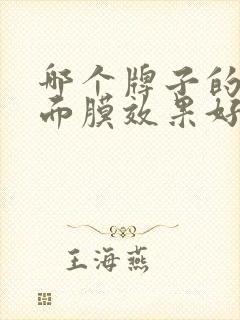 哪个牌子的
面膜效果好
王海燕